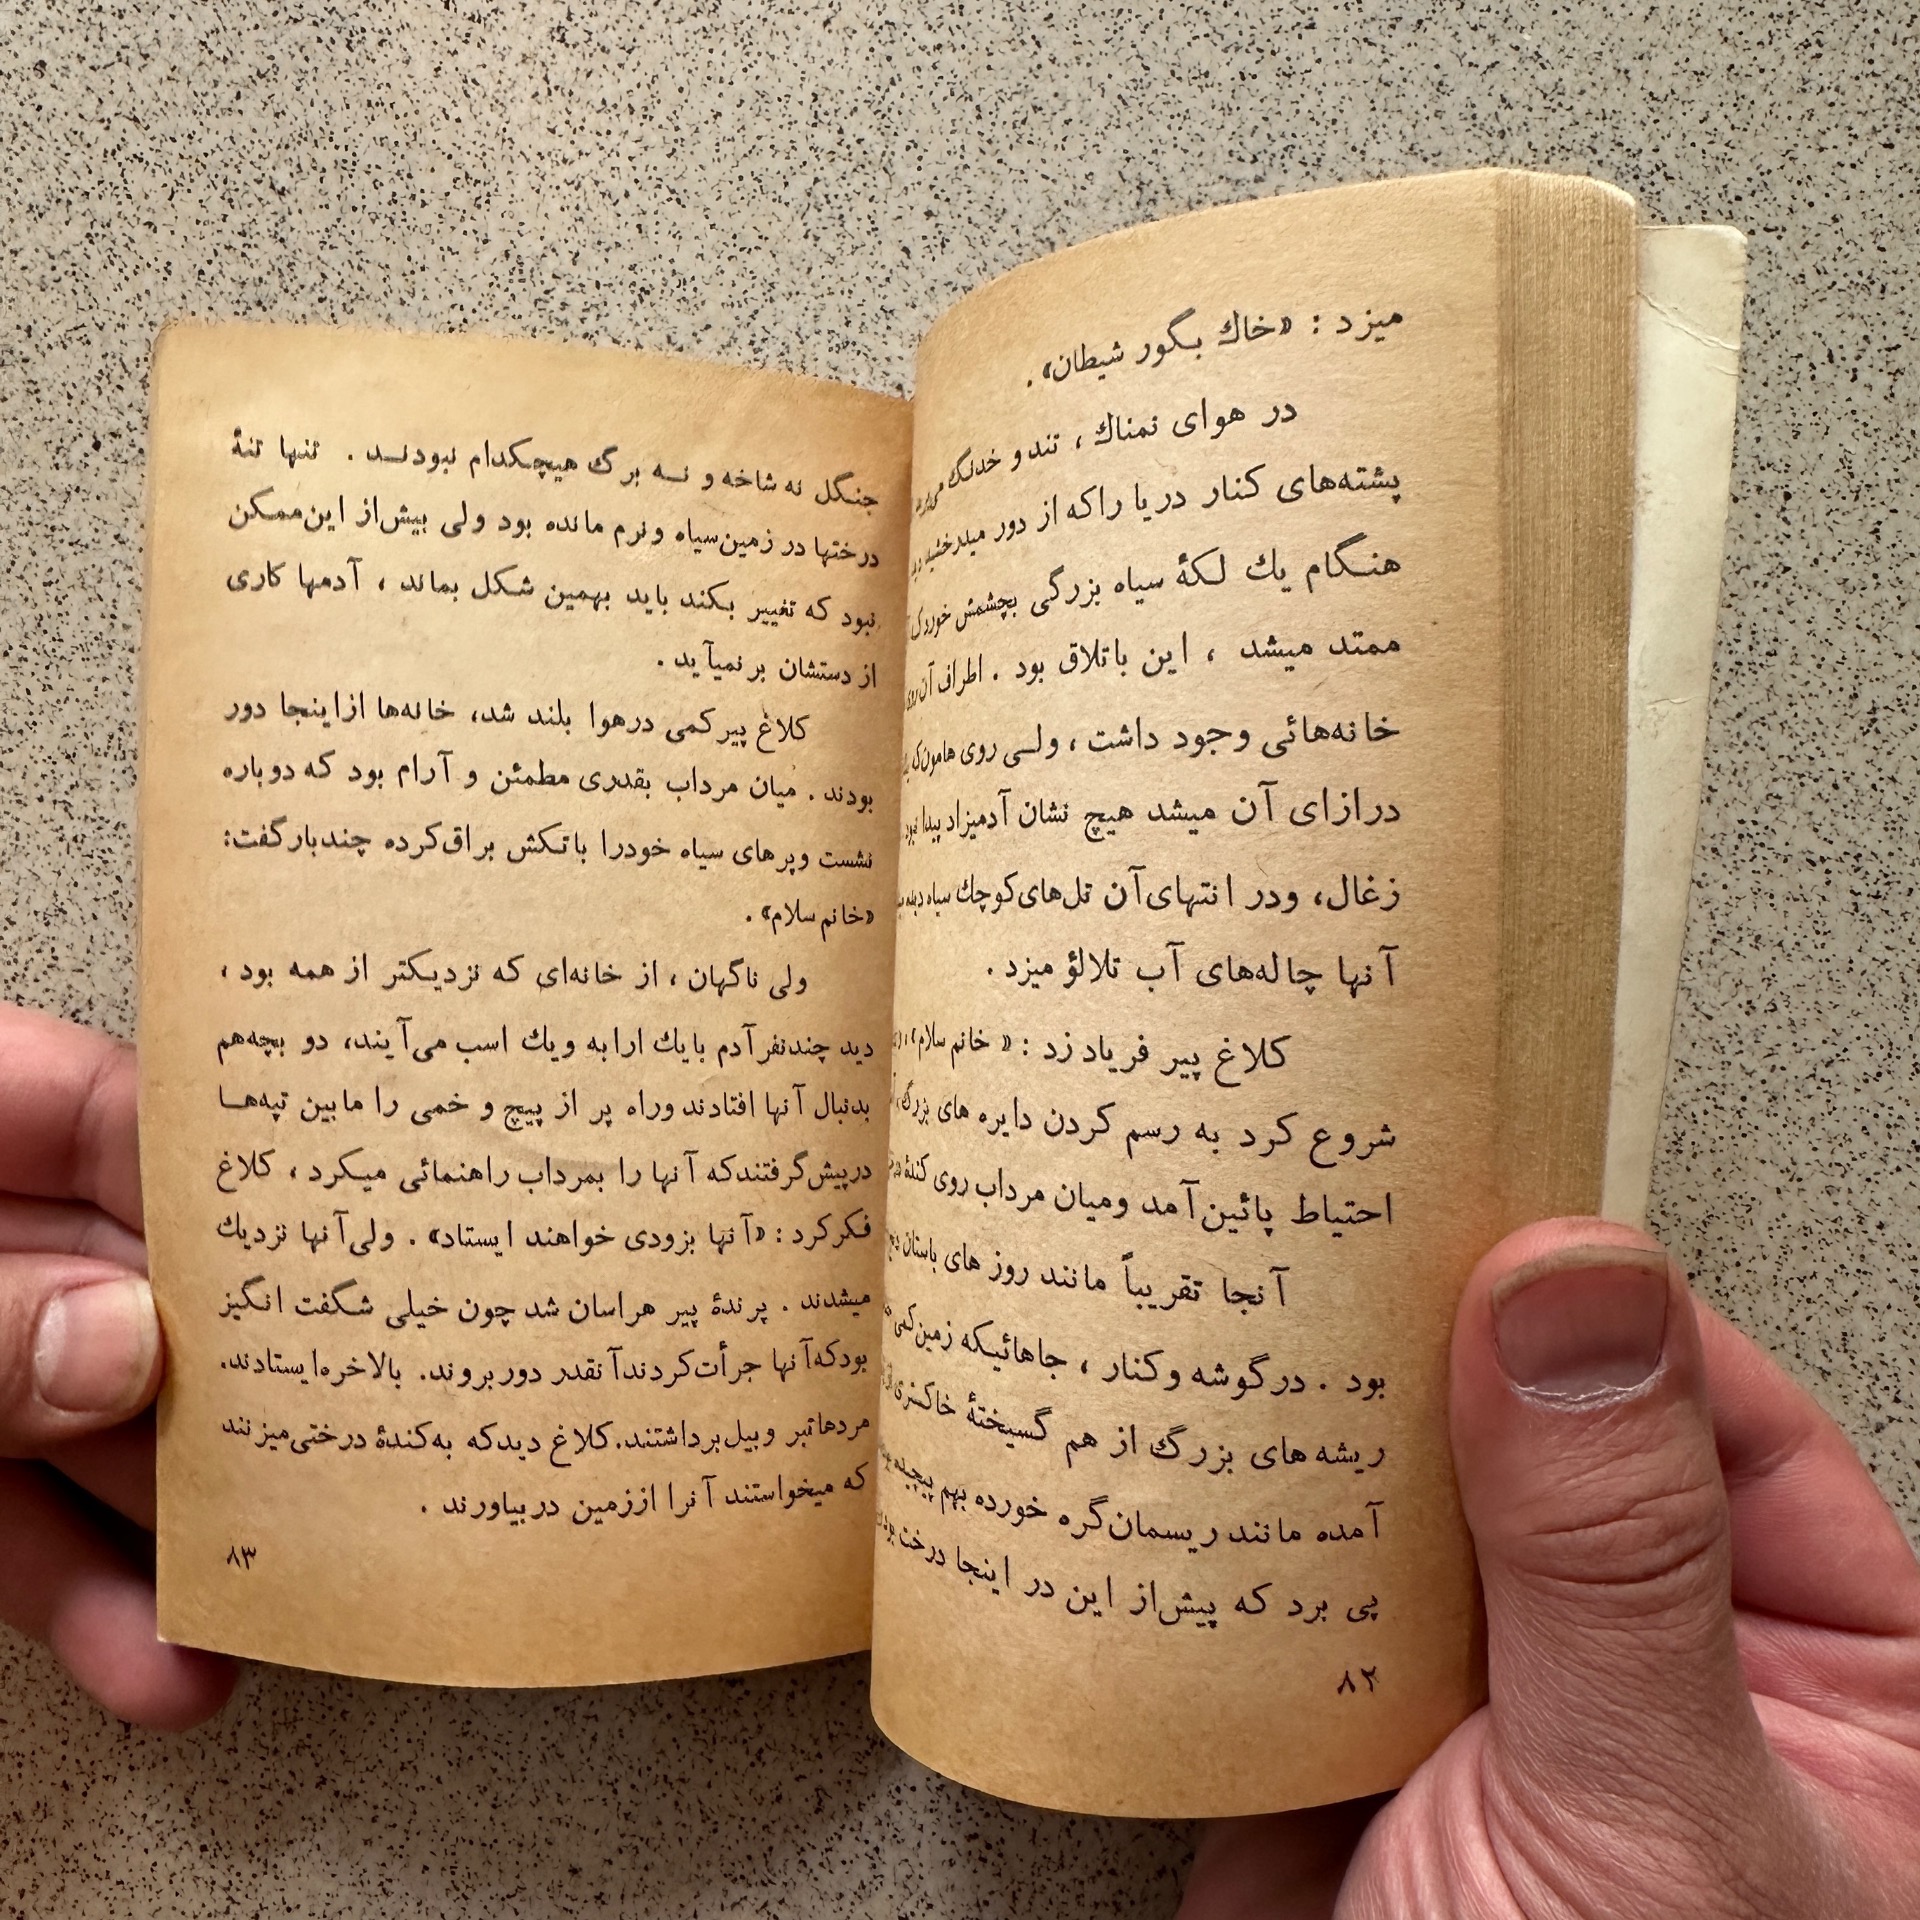 میزد : «خاك بگور شیطان» .
در هوای نمناك ، تند و خدنگ
پشته‌های کنار دریا راکه از دور میدرخشید
هنگام یك لکهٔ سیاه بزرگی بچشمش خورد که
ممتد میشد ، این باتلاق بود . اطراف آن روی
خانه‌هائی وجود داشت ، ولی روی هامون که
درازای آن میشد هیچ نشان آدمیزاد پیدا نبود
زغال، ودر انتهای‌آن تل‌های‌کوچك سیاه دیده
آنها چاله‌های آب تلالؤ میزد .
کلاغ پیر فریاد زد : « خانم سلام» ،
شروع کرد به رسم کردن دایره های بزرگ ،
احتیاط پائین‌آمد ومیان مرداب روی کندهٔ
آنجا تقریباً مانند روز های باستان
بود . درگوشه وکنار ، جاهائیکه زمین کمی
ریشه های بزرگ از هم گسیختهٔ خاکستری
آمده مانند ریسمان‌گره خورده بهم پیچیده
پی برد که پیش‌از این در اینجا درخت بوده
۸۲
جنگل نه شاخه و نه برگ هیچکدام نبودند . تنها تنهٔ
درختها در زمین‌سیاه ونرم مانده بود ولی بیش‌از این‌ممکن
نبود که تغییر بکند باید بهمین شکل بماند ، آدمها کاری
از دستشان بر نمیآید .
کلاغ پیرکمی درهوا بلند شد، خانه‌ها ازاینجا دور
بودند . میان مرداب بقدری مطمئن و آرام بود که دوباره
نشست وپرهای سیاه خودرا باتکش براق‌کرده چندبارگفت:
«خانم سلام» .
ولی ناگهان ، از خانه‌ای که نزدیکتر از همه بود ،
دید چندنفرآدم بایك ارابه ویك اسب می‌آیند، دو بچه‌هم
بدنبال آنها افتادند وراه پر از پیچ و خمی را مابین تپه‌ها
درپیش‌گرفتندکه آنها را بمرداب راهنمائی میکرد ، کلاغ
فکرکرد : «آنها بزودی خواهند ایستاد» . ولی‌آنها نزدیك
میشدند . پرندهٔ پیر هراسان شد چون خیلی شگفت انگیز
بودکه‌آنها جرأت‌کردندآنقدر دوربروند. بالاخره‌ایستادند.
مردهاتبر وبیل‌برداشتند.کلاغ دیدکه به‌کندهٔ درختی‌میزنند
که میخواستند آنرا اززمین دربیاورند .
۸۳